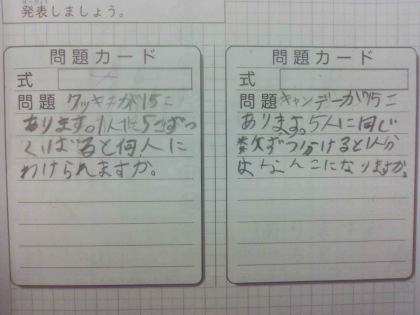 発表しましょう。
問題カード
式
問題 クッキーが15こ
あります。1人に5こずつ
くばると何人に
わけられますか。
問題カード
式
問題 キャンデーが15こ
あります。5人に同じ
数ずつ分けると1人分
はなんこになりますか。